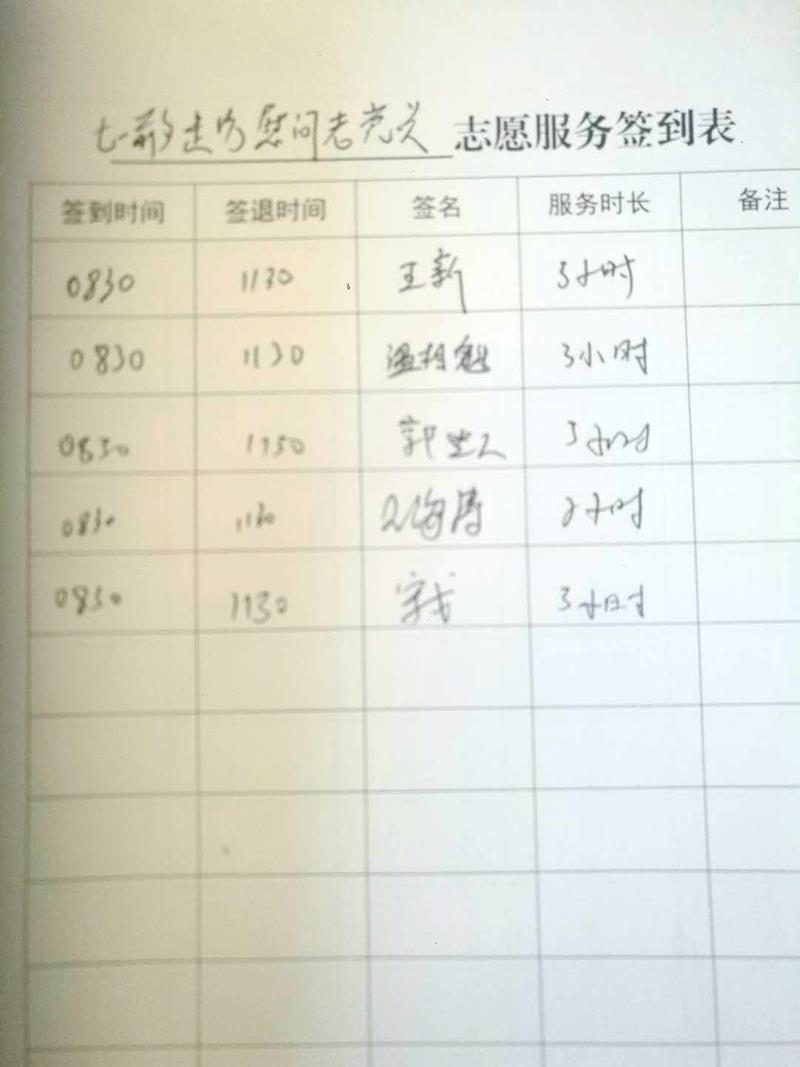 七一前夕走访慰问老党员 志愿服务签到表
签到时间 签退时间 签名 服务时长 备注
0830 1130 王新 3小时
0830 1130 温桂魁 3小时
0830 1130 郭 3小时
0830 1130 小时
0830 1130 3小时